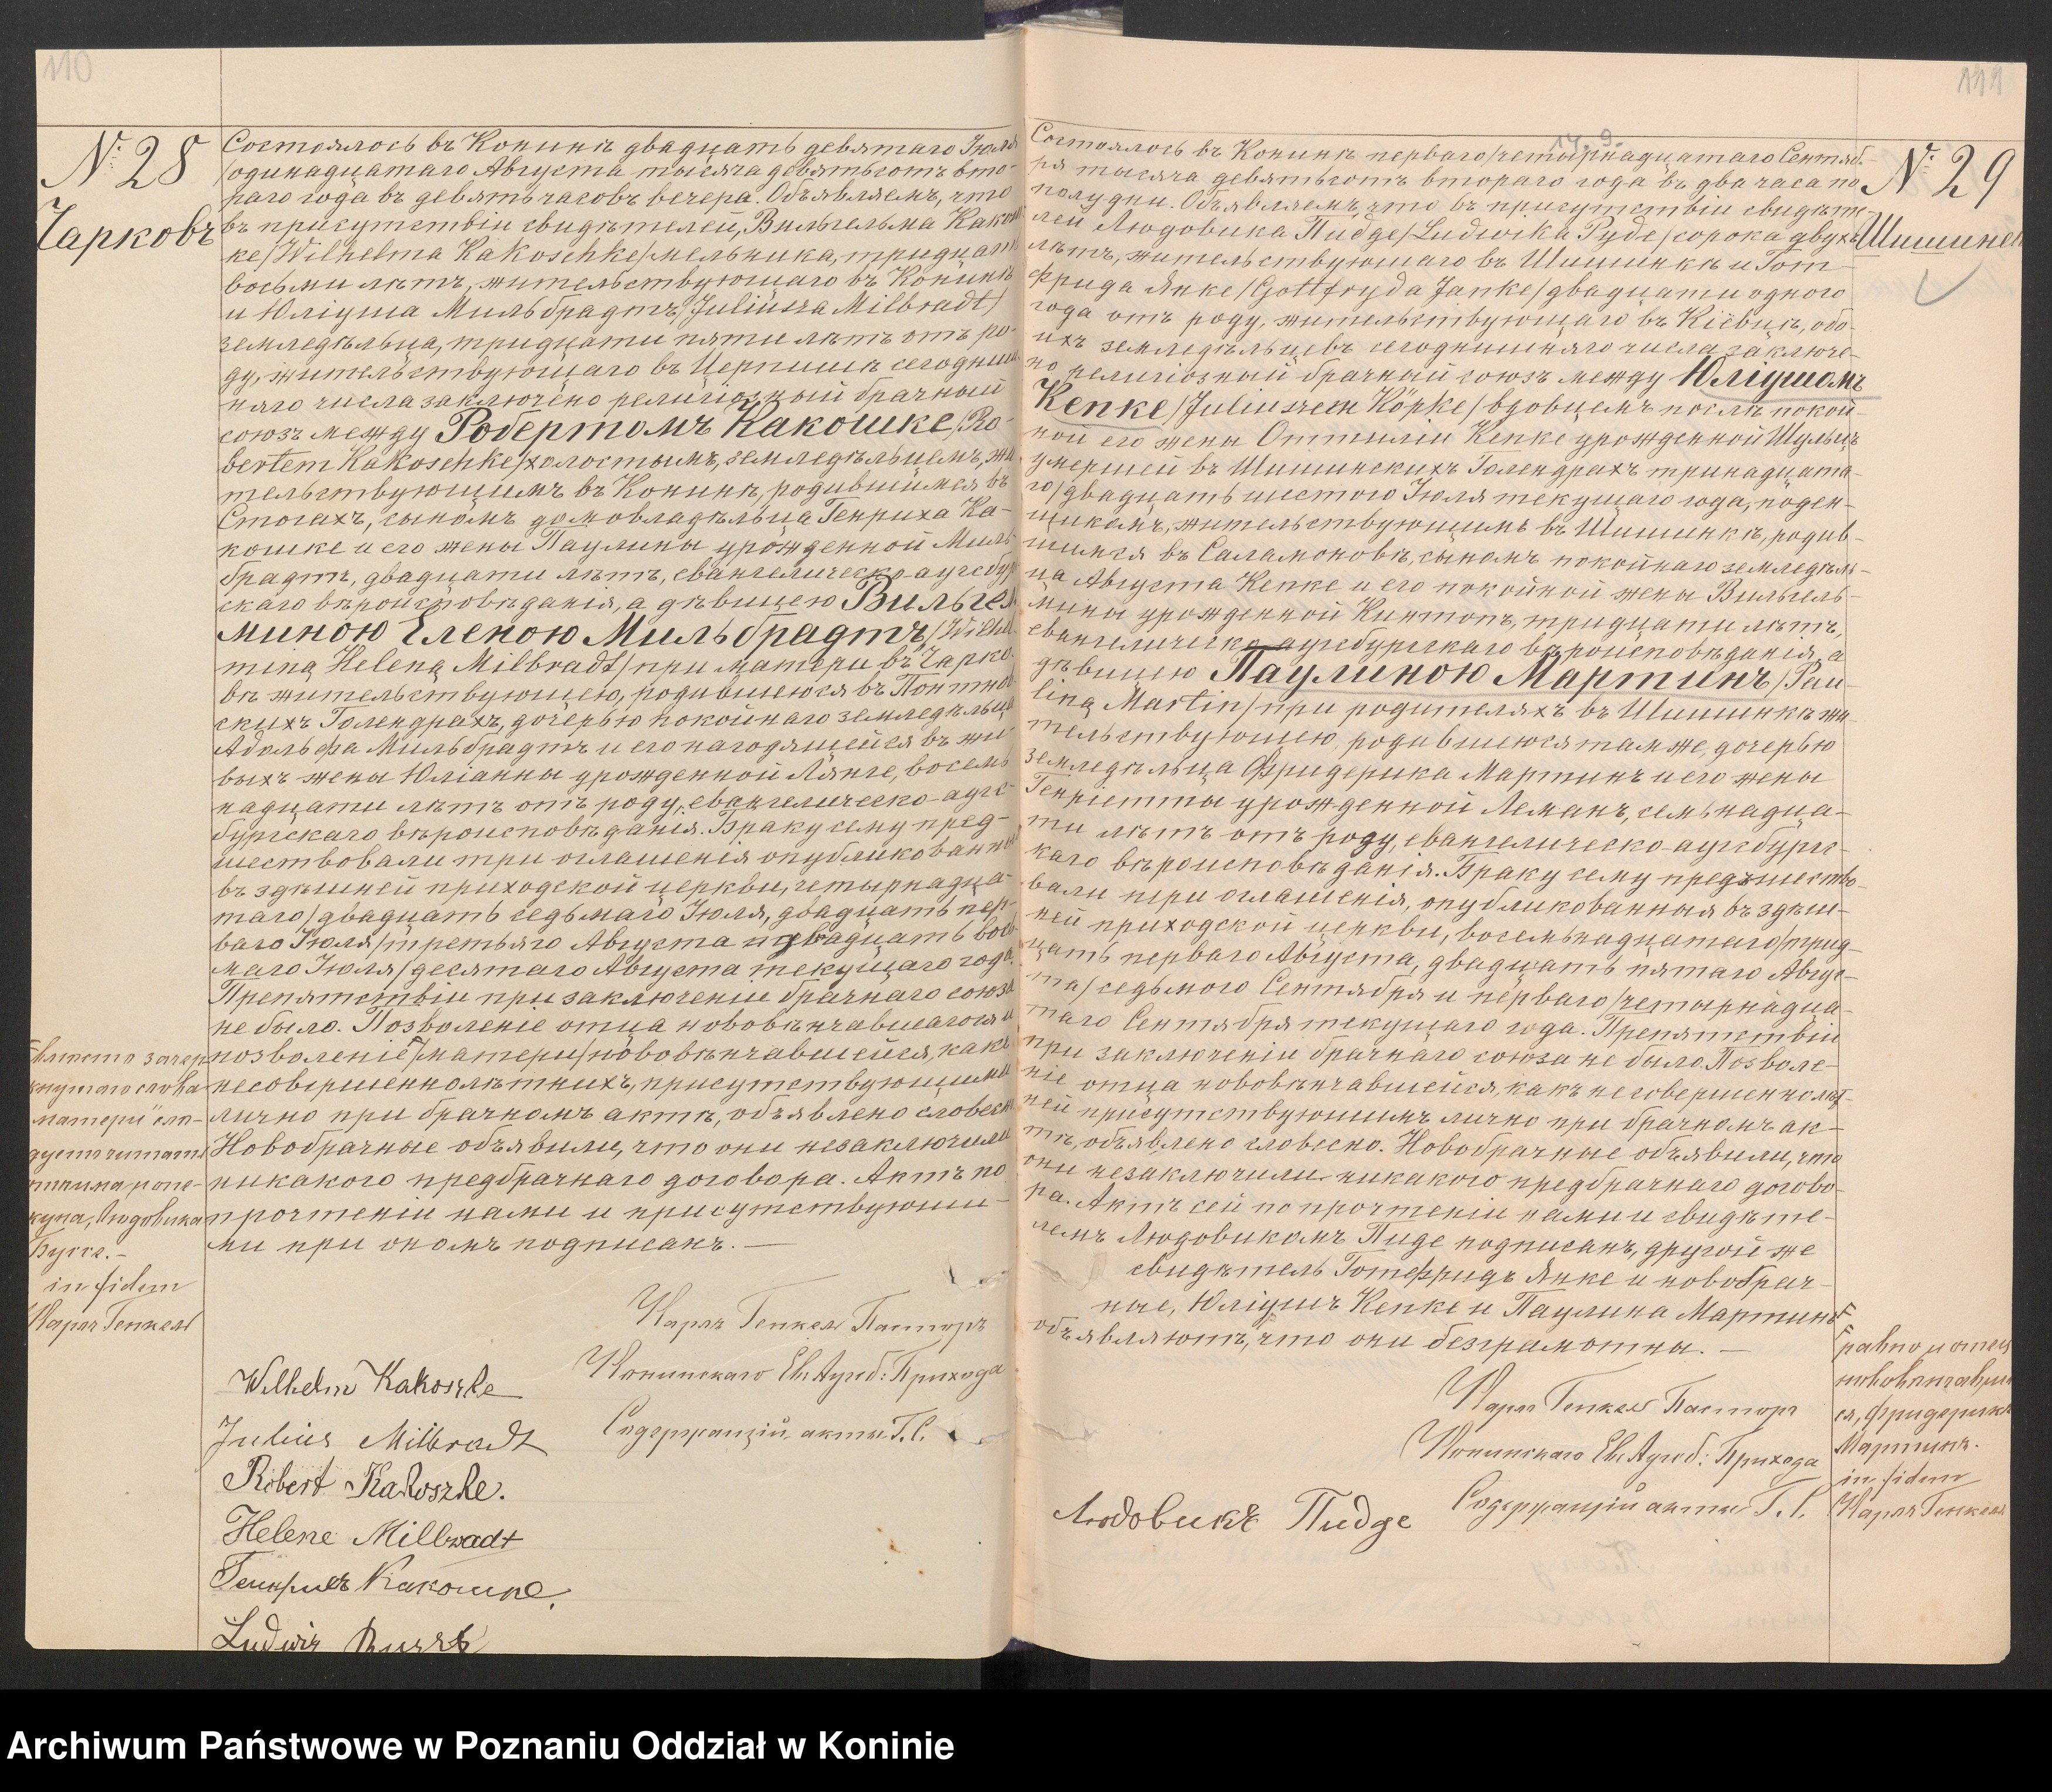 110
№ 28
Чарковъ
Состоялось въ Конинѣ двадцать девятаго Іюля
/одинадцатаго Августа тысяча девятьсотъ вто-
раго года въ девять часовъ вечера. Объявляемъ, что
въ присутствіи свидѣтелей, Вильгельма Какош-
ке /Wilhelma Kakoschke/ мельника, тридцати
восьми лѣтъ, жительствующаго въ Конинѣ
и Юліуша Мильбрадтъ /Juliusza Milbradt/
земледѣльца, тридцати пяти лѣтъ отъ ро-
ду, жительствующаго въ Церпишѣ сегодниш-
няго числа заключено религіозный брачный
союзъ между Робертомъ Какошке /Ro-
bertem Kakoschke/ холостымъ, земледѣльцемъ, жи-
тельствующимъ въ Конинѣ, родившимся въ
Стогахъ, сыномъ домовладѣльца Генриха Ка-
кошке и его жены Паулины урожденной Миль-
брадтъ, двадцати лѣтъ, евангелическо-аугсбур-
скаго вѣроисповѣданія, а дѣвицею Вильгель-
миною Еленою Мильбрадтъ /Wilhel-
miną Heleną Milbradt/ при матери въ Чарко-
вѣ жительствующею, родившеюся въ Понтнов-
скихъ Голендрахъ, дочерью покойнаго земледѣльца
Адольфа Мильбрадтъ и его находящейся въ жи-
выхъ жены Юліанны урожденной Лянге, восемь-
надцати лѣтъ отъ роду, евангелическо-аугс-
бургскаго вѣроисповѣданія. Браку сему пред-
шествовали три оглашенія опубликованныя
въ здѣшней приходской церкви, четырнадца-
таго /двадцать седьмаго Іюля, двадцать пер-
ваго Іюля /третьяго Августа и двадцать вось-
маго Іюля /десятаго Августа текущаго года.
Препятствіи при заключеніи брачнаго союза
не было. Позволеніе отца нововѣнчавшагося и
позволеніе /матери/ нововѣнчавшейся, какъ
несовершеннолѣтнихъ, присутствующими
лично при брачномъ актѣ, объявлено словесно.
Новобрачные объявили, что они незаключили
никакого предбрачнаго договора. Актъ по
прочтеніи нами и присутствующи-
ми при ономъ подписанъ. —
вмѣсто зачер-
кнутаго слова
„матери" слѣ-
дуетъ читать
опекуна, Людовика
Буссе. -
in fidem
Карлъ Генкель
Карлъ Генкель Пасторъ
Конинскаго Ев. Аугсб: Прихода
Содержащій акты Г. С.
Wilhelm Kakoszke
Julius Milbradt
Robert Kakoszke.
Helene Millbradt
Генрихъ Какошке.
Ludwig Busse
111
№ 29
Шишинек
14. 9.
Состоялось въ Конинѣ перваго /четырнадцатаго Сентяб-
ря тысяча девятьсотъ втораго года въ два часа по
полудни. Объявляемъ, что въ присутствіи свидѣте-
лей Людовика Пидзе /Ludwika Pyde/ сорока двухъ
лѣтъ, жительствующаго въ Шишинкѣ и Гот-
фрида Янке /Gottfryda Janke/ двадцати одного
года отъ роду, жительствующаго въ Кіевцѣ, обо-
ихъ земледѣльцевъ сегоднишняго числа заключе-
но религіозный брачный союзъ между Юліушомъ
Кепке /Juliuszem Köpke/ вдовцемъ послѣ покой-
ной его жены Оттиліи Кепке урожденной Шульцъ
умершей въ Шишинскихъ Голендрахъ тринадцата-
го /двадцать шестого Іюля текущаго года, поден-
щикомъ, жительствующимъ въ Шишинкѣ, родив-
шимся въ Саламоновѣ, сыномъ покойнаго земледѣль-
ца Августа Кепке и его покойной жены Вильгель-
мины урожденной Кинтопъ, тридцати лѣтъ,
евангелическо-аугсбургкаго вѣроисповѣданія, а
дѣвицею Паулиною Мартинъ /Pau-
liną Martin/ при родителяхъ въ Шишинкѣ жи-
тельствующею, родившеюся тамже, дочерью
земледѣльца Фридерика Мартинъ и его жены
Генріетты урожденной Леманъ, семьнадца-
ти лѣтъ отъ роду, евангелическо-аугсбургс-
каго вѣроисповѣданія. Браку сему предшество-
вали три оглашенія, опубликованныя въ здѣш-
ней приходской церкви, восемьнадцатаго /трид-
цать перваго Августа, двадцать пятаго Авгус-
та /седьмого Сентября и перваго /четырнадца-
таго Сентября текущаго года. Препятствіи
при заключеніи брачнаго союза не было. Позволе-
ніе отца нововѣнчавшейся, какъ несовершеннолѣт-
ней присутствующимъ лично при брачномъ ак-
тѣ, объявлено словесно. Новобрачные объявили, что
они незаключили никакого предбрачнаго догово-
ра. Актъ сей по прочтеніи нами и свидѣте-
лемъ Людовикомъ Пидзе подписанъ, другой же
свидѣтель Готфридъ Янке и новобрач-
ные, Юліушъ Кепке и Паулина Мартинъ
объявляютъ, что они безграмотны. —
равно и отецъ
нововѣнчавшей-
ся, Фридерикъ
Мартинъ.
in fidem
Карлъ Генкель
Карлъ Генкель Пасторъ
Конинскаго Ев. Аугсб: Прихода
Содержащій акты Г. С.
Людовикъ Пидзе
Archiwum Państwowe w Poznaniu Oddział w Koninie